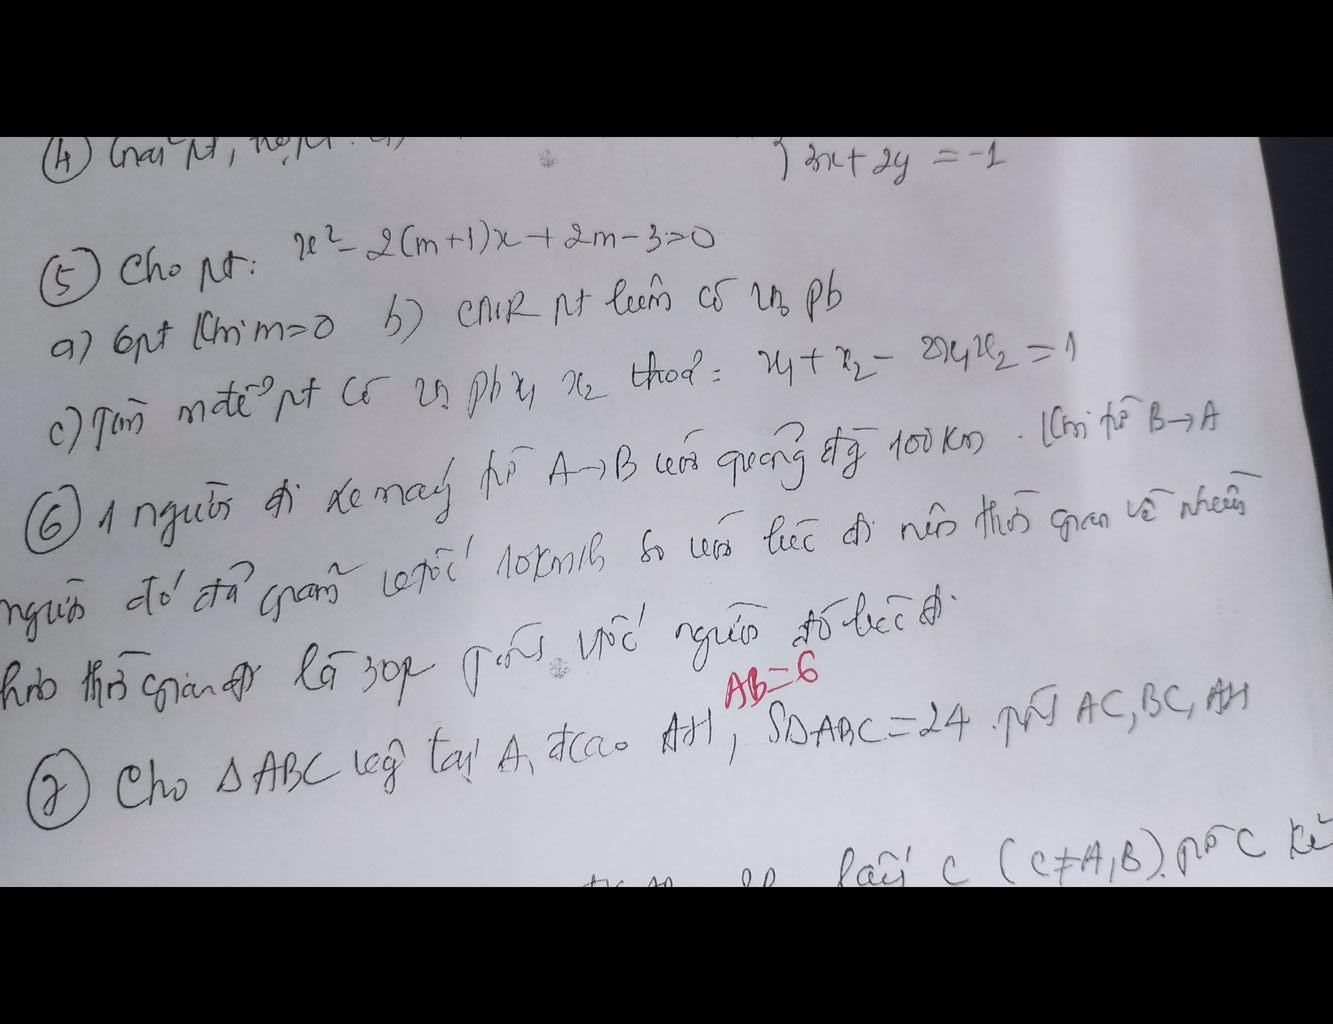 ④ Giải pt, hệ pt: a)
3x + 2y = -1
⑤ Cho pt: x² - 2(m+1)x + 2m - 3 = 0
a) Gpt khi m = 0 b) CMR pt luôn có no pb
c) Tìm m để pt có no pb x₁ x₂ thoả: x₁ + x₂ - 2x₁x₂ = 1
⑥ 1 người đi xe máy từ A→B với quãng đg 100km. Khi từ B→A
người đó đã giảm vtốc 10km/h so với lúc đi nên thời gian về nhiều
hơn thời gian đi là 30p Tính vtốc người đó lúc đi.
AB = 6
⑦ Cho ΔABC vg tại A, đcao AH, SΔABC = 24 . Tính AC, BC, AH
lấy C (C≠A,B). Từ C kẻ